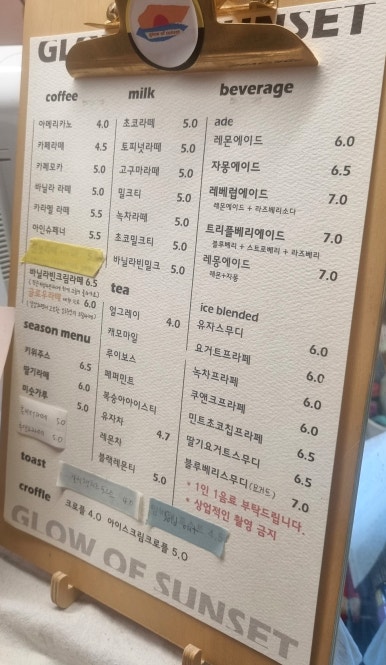 GLOW OF SUNSET
coffee
아메리카노 4.0
카페라떼 4.5
카페모카 5.0
바닐라 라떼 5.0
카라멜 라떼 5.5
아인슈페너 5.5
바닐라빈크림라떼 6.5
글로우라떼 6.0
season menu
키위주스 6.5
딸기라떼 6.0
미숫가루 5.0
5.0
5.0
toast
croffle
크로플 4.0 아이스크림크로플 5.0
milk
초코라떼 5.0
토피넛라떼 5.0
고구마라떼 5.0
밀크티 5.0
녹차라떼 5.0
초코밀크티 5.0
바닐라빈밀크 5.0
tea
얼그레이 4.0
캐모마일
루이보스
페퍼민트
복숭아아이스티
유자차 4.7
레몬차
블랙레몬티 5.0
beverage
ade
레몬에이드 6.0
자몽에이드 6.5
레베럽에이드 7.0
레몬에이드 + 라즈베리소다
트리플베리에이드 7.0
블루베리 + 스트로베리 + 라즈베리
레몽에이드 7.0
레몬+자몽
ice blended
유자스무디 6.0
요거트프라페 6.0
녹차프라페 6.0
쿠앤크프라페 6.0
민트초코칩프라페 6.5
딸기요거트스무디 6.5
블루베리스무디(요거트) 7.0
* 1인 1음료 부탁드립니다.
* 상업적인 촬영 금지
GLOW OF SUNSET